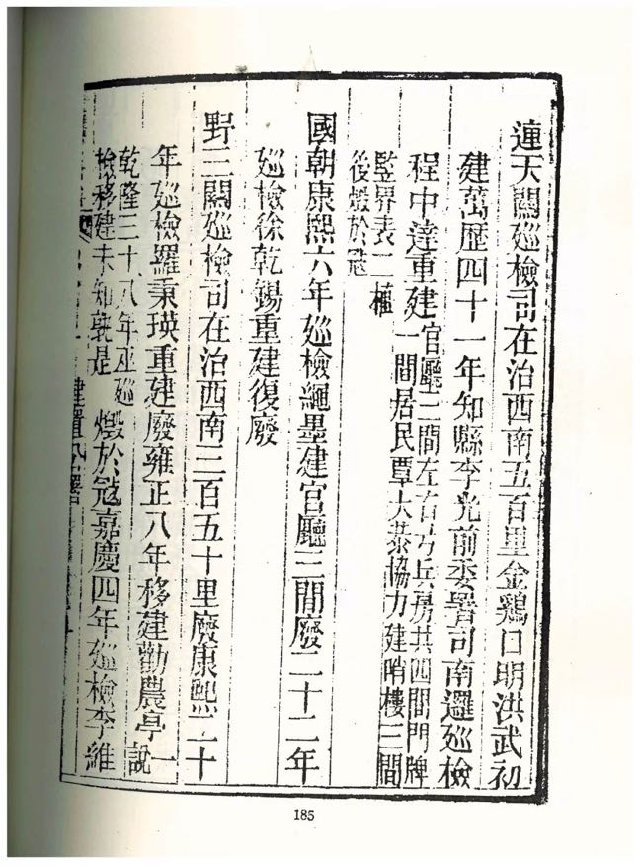 連天關廵檢司在治西南五百里金鷄口明洪武初
建萬歷四十一年知縣李光前委署司南邏廵檢
程中達重建官廳三間左右弓兵房共四間門牌
一間居民覃大恭協力建哨樓三間
監界表二樁
後燬於寇
國朝康熙六年廵檢繩墨建官廳三間廢二十二年
廵檢徐乾錫重建復廢
野三關廵檢司在治西南三百五十里廢康熙二十
年廵檢羅秉瑛重建廢雍正八年移建勸農亭一說
乾隆三十八年巫廵
檢移建未知孰是燬於寇嘉慶四年廵檢李維
建置
185